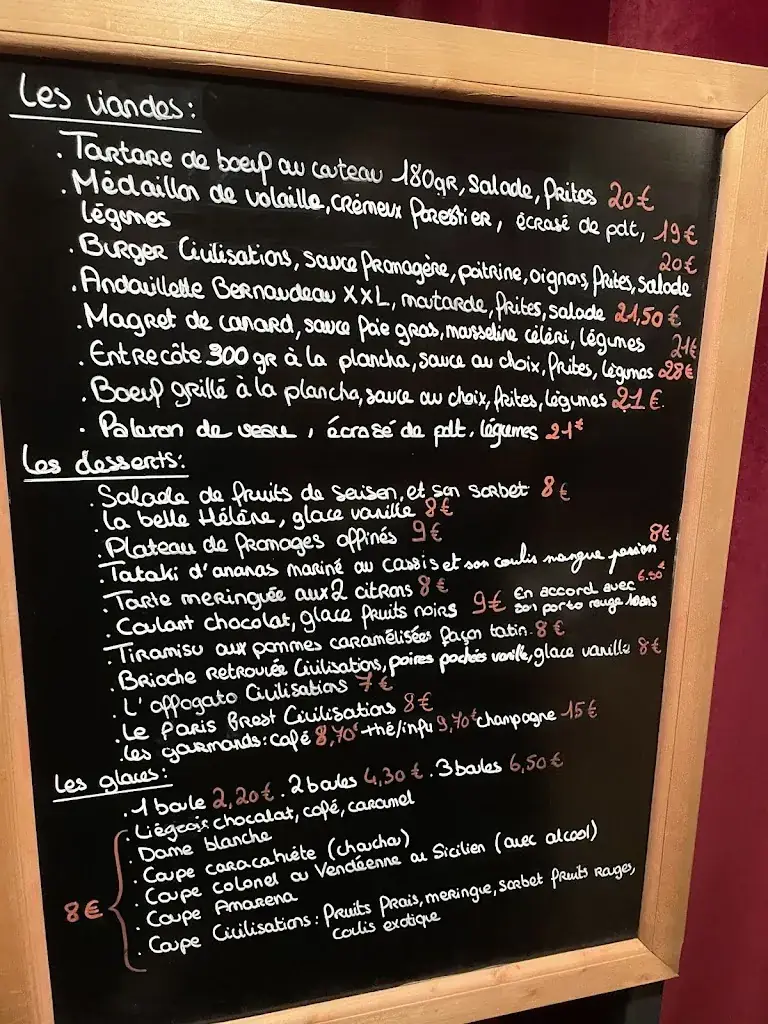 Les viandes:
. Tartare de boeuf au couteau 180gr, salade, frites 20€
. Médaillon de volaille, crémeux forestier, écrasé de pdt, 19€
légumes
20€
. Burger Civilisations, sauce fromagère, poitrine, oignons, frites, salade
. Andouillette Bernaudeau XXL, moutarde, frites, salade 21,50 €
. Magret de canard, sauce foie gras, mousseline céleri, légumes 21€
. Entrecôte 300 gr à la plancha, sauce au choix, frites, légumes 28€
. Boeuf grillé à la plancha, sauce au choix, frites, légumes 21 €.
. Paleron de veau, écrasé de pdt, légumes 21€
Les desserts:
. Salade de fruits de saison, et son sorbet 8€
. La belle Hélène, glace vanille 8€
. Plateau de fromages affinés 9€
. Tataki d'ananas mariné au cassis et son coulis mangue passion 8€
. Tarte meringuée aux 2 citrons 8€
. Coulant chocolat, glace fruits noirs 9€ En accord avec son porto rouge 10ans 6.50€
. Tiramisu aux pommes caramélisées façon tatin. 8€
. Brioche retrouvée Civilisations, poires pochées vanille, glace vanille 8€
. L'affogato Civilisations 7€
. Le Paris Brest Civilisations 8€
. Les gourmands: café 8,70€ thé/infu 9,70€ champagne 15€
Les glaces:
. 1 boule 2,20€. 2 boules 4,30€. 3 boules 6,50€
8€
. Liégeois chocolat, café, caramel
. Dame blanche
. Coupe caracahuète (chouchou)
. Coupe colonel ou Vendéenne ou Sicilien (avec alcool)
. Coupe Amarena
. Coupe Civilisations: fruits frais, meringue, sorbet fruits rouges,
coulis exotique